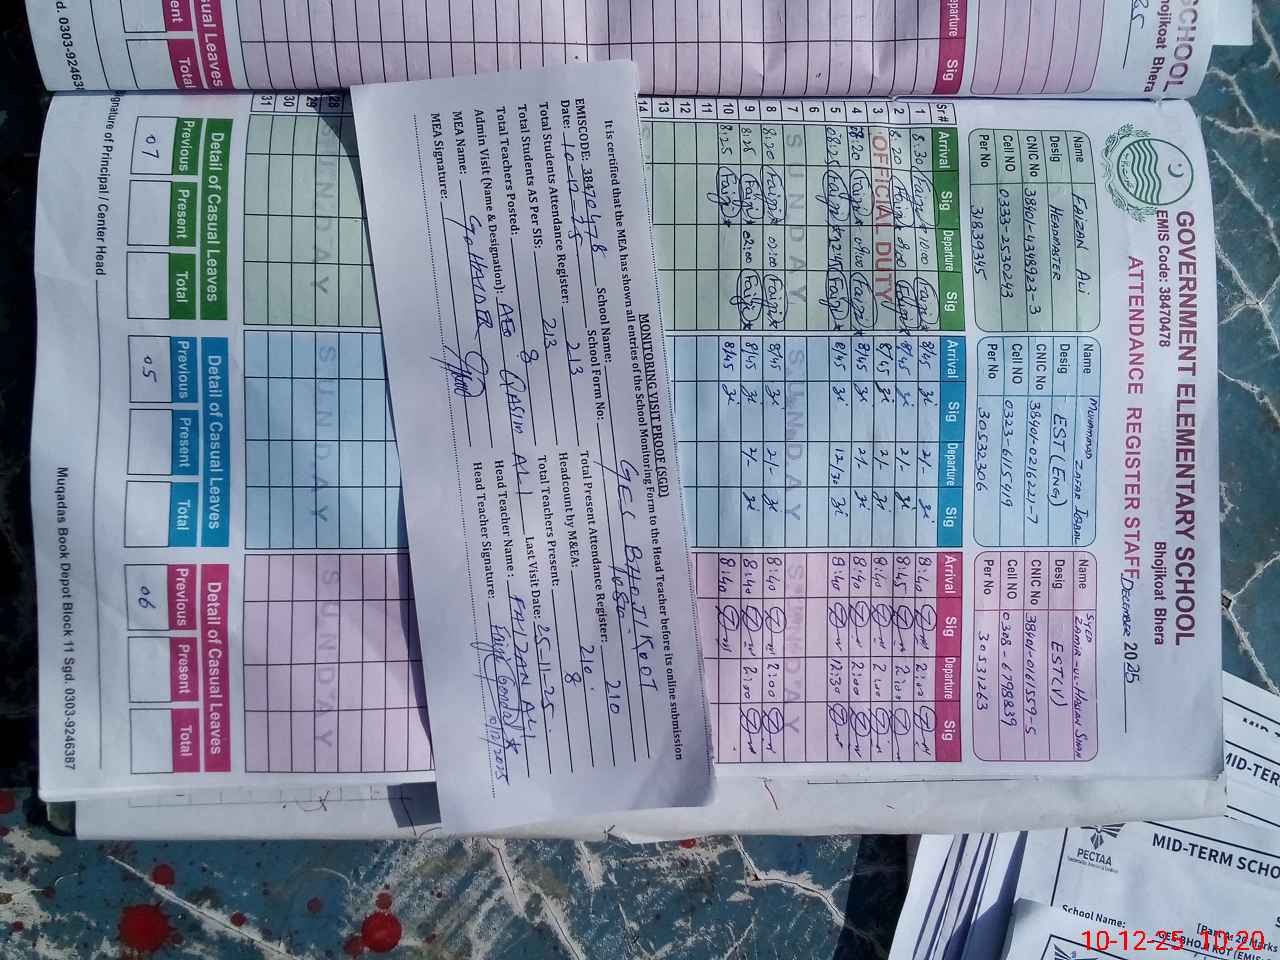 GOVERNMENT ELEMENTARY SCHOOL
EMIS Code: 38470478 Bhojikoat Bhera
ATTENDANCE REGISTER STAFF December 2025
Name FAIZAN ALI
Desig HEADMASTER
CNIC No 38401-4348923-3
Cell NO 0333-2530243
Per No 31839345
Name MUHAMMAD ZAFAR IQBAL
Desig EST (ENG)
CNIC No 38401-0216221-7
Cell NO 0323-6115419
Per No 30532306
Name SYED ZAMIR-UL-HASSAN SHAH
Desig EST(V)
CNIC No 38401-0161559-5
Cell NO 0308-6798839
Per No 30531263
Sr# Arrival Sig Departure Sig Arrival Sig Departure Sig Arrival Sig Departure Sig
1 8:30 8/45 2/- 8:40 2:00
2 8:20 8/45 2/- 8:45 2:00
3 OFFICIAL DUTY 8/45 2/- 8:40 2:00
4 08:20 8/45 2/- 8:40 2:00
5 08:25 12:45 8/45 12/30 8:40 12:30
6
7 SUNDAY SUNDAY SUNDAY
8 8:20 02:00 8/45 2/- 8:40 2:00
9 8:25 02:00 8/45 2/- 8:40 2:00
10 8:25 8/45 8:40
11
12
13
14
28 SUNDAY SUNDAY SUNDAY
29
30
31
Detail of Casual Leaves
Previous Present Total
07
Detail of Casual Leaves
Previous Present Total
05
Detail of Casual Leaves
Previous Present Total
06
Signature of Principal / Center Head
Muqadas Book Depot Block 11 Sgd. 0303-9246387
MONITORING VISIT PROOF (SGD)
It is certified that the MEA has shown all entries of the School Monitoring Form to the Head Teacher before its online submission
EMISCODE: 38470478 School Name: GES BHOJI KOOT
Date: 10-12-25 School Form No: 1080
Total Students Attendance Register: 213 Total Present Attendance Register: 210
Total Students AS Per SIS: 213 Headcount by M&EA: 210
Total Teachers Posted: 8 Total Teachers Present: 8
Admin Visit (Name & Designation): AEO QASIM ALI Last Visit Date: 25-11-25
MEA Name: Head Teacher Name: FAIZAN ALI
MEA Signature: Head Teacher Signature: 10/12/2025
SCHOOL
Bhojikoat Bhera
Departure Sig
Casual Leaves
Present Total
Sgd. 0303-9246387
MID-TERM
PECTAA
MID-TERM SCHO
School Name:
[Part A: 20 Marks
GES BHOJI KOT (EMIS
10-12-25 10:20